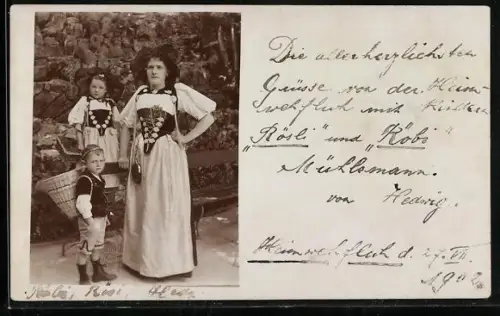 Die allerherzlichsten
Grüsse von der Heim-
wehfluh mit Kindern
"Rösli" und "Köbi"
Mühlemann.
von Hedwig.
Heimwehfluh d. 27. VII.
Köbi, Rösi,